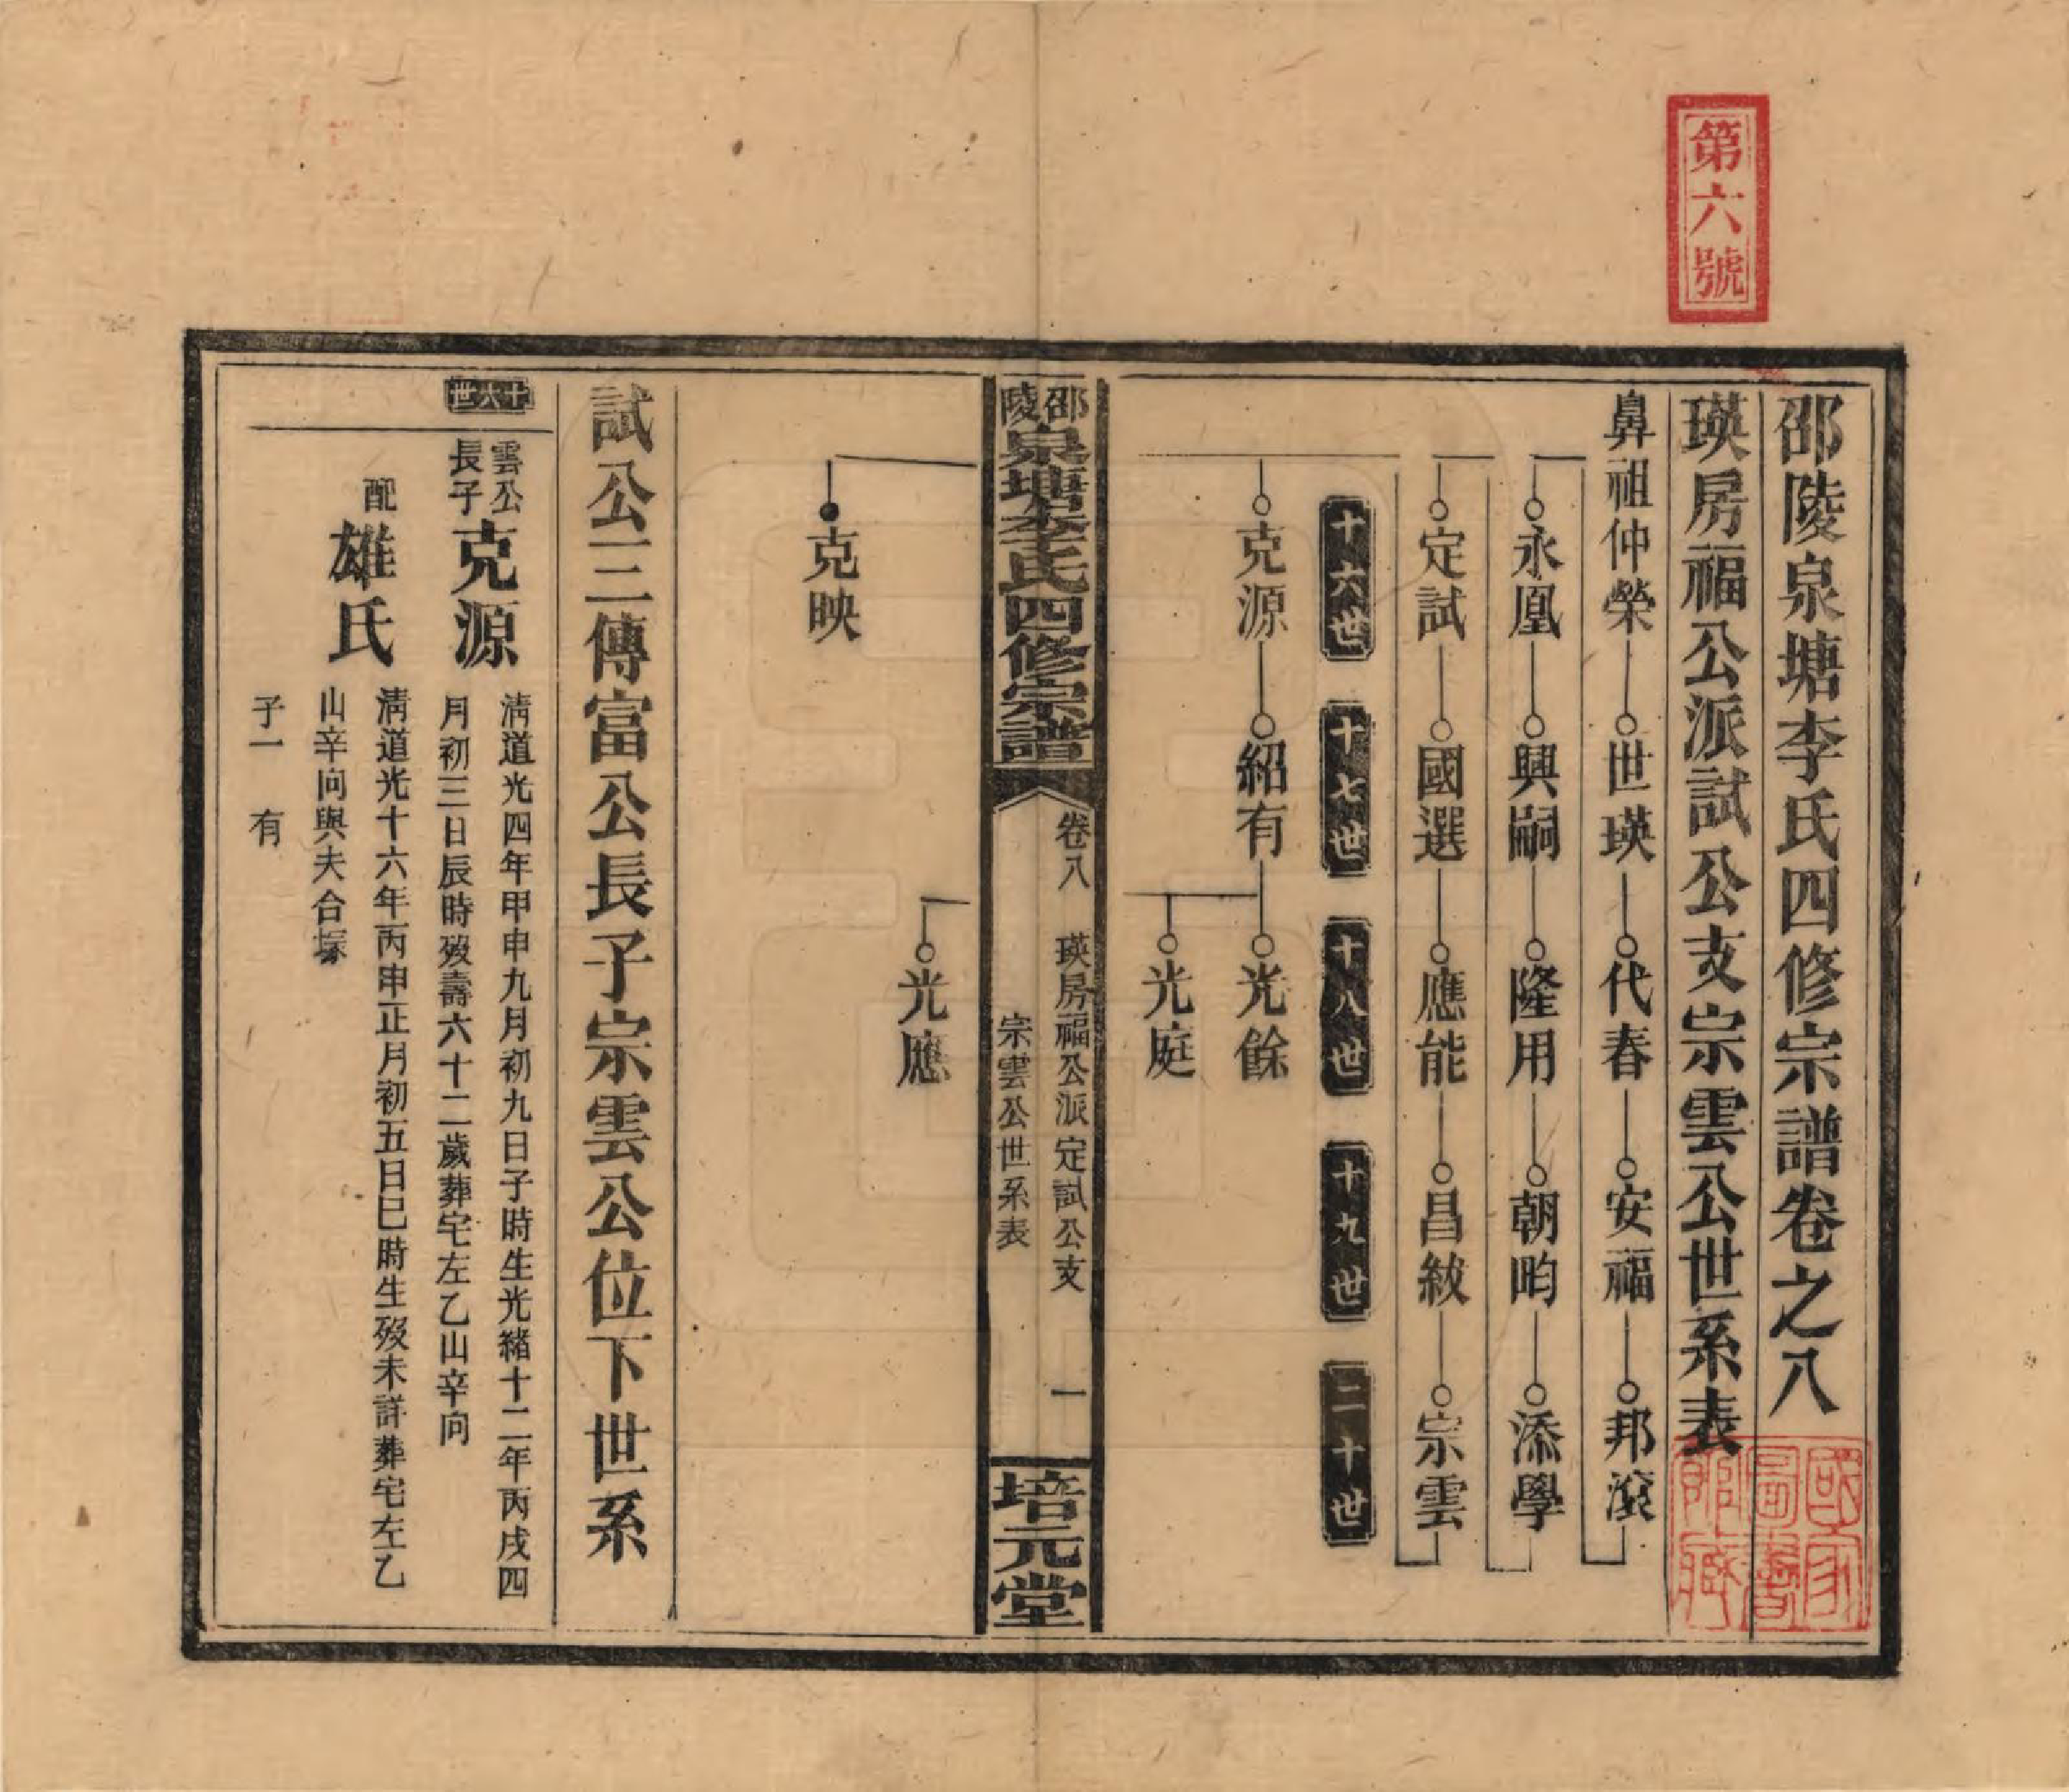 第六號
邵陵泉塘李氏四修宗譜卷之八
瑛房福公派試公支宗雲公世系表
國家圖書館藏
鼻祖仲榮 世瑛 代春 安福 邦滾
永凰 興嗣 隆用 朝畇 添學
定試 國選 應能 昌紱 宗雲
十六世 十七世 十八世 十九世 二十世
克源 紹有 光餘
光庭
邵陵泉塘李氏四修宗譜
卷八 瑛房福公派定試公支 一
宗雲公世系表
培元堂
光應
克映
試公三傳富公長子宗雲公位下世系
十六世
雲公長子 克源 清道光四年甲申九月初九日子時生光緒十二年丙戌四
月初三日辰時歿壽六十二歲葬宅左乙山辛向
配 雄氏 清道光十六年丙申正月初五日巳時生歿未詳葬宅左乙
山辛向與夫合塚
子一 有